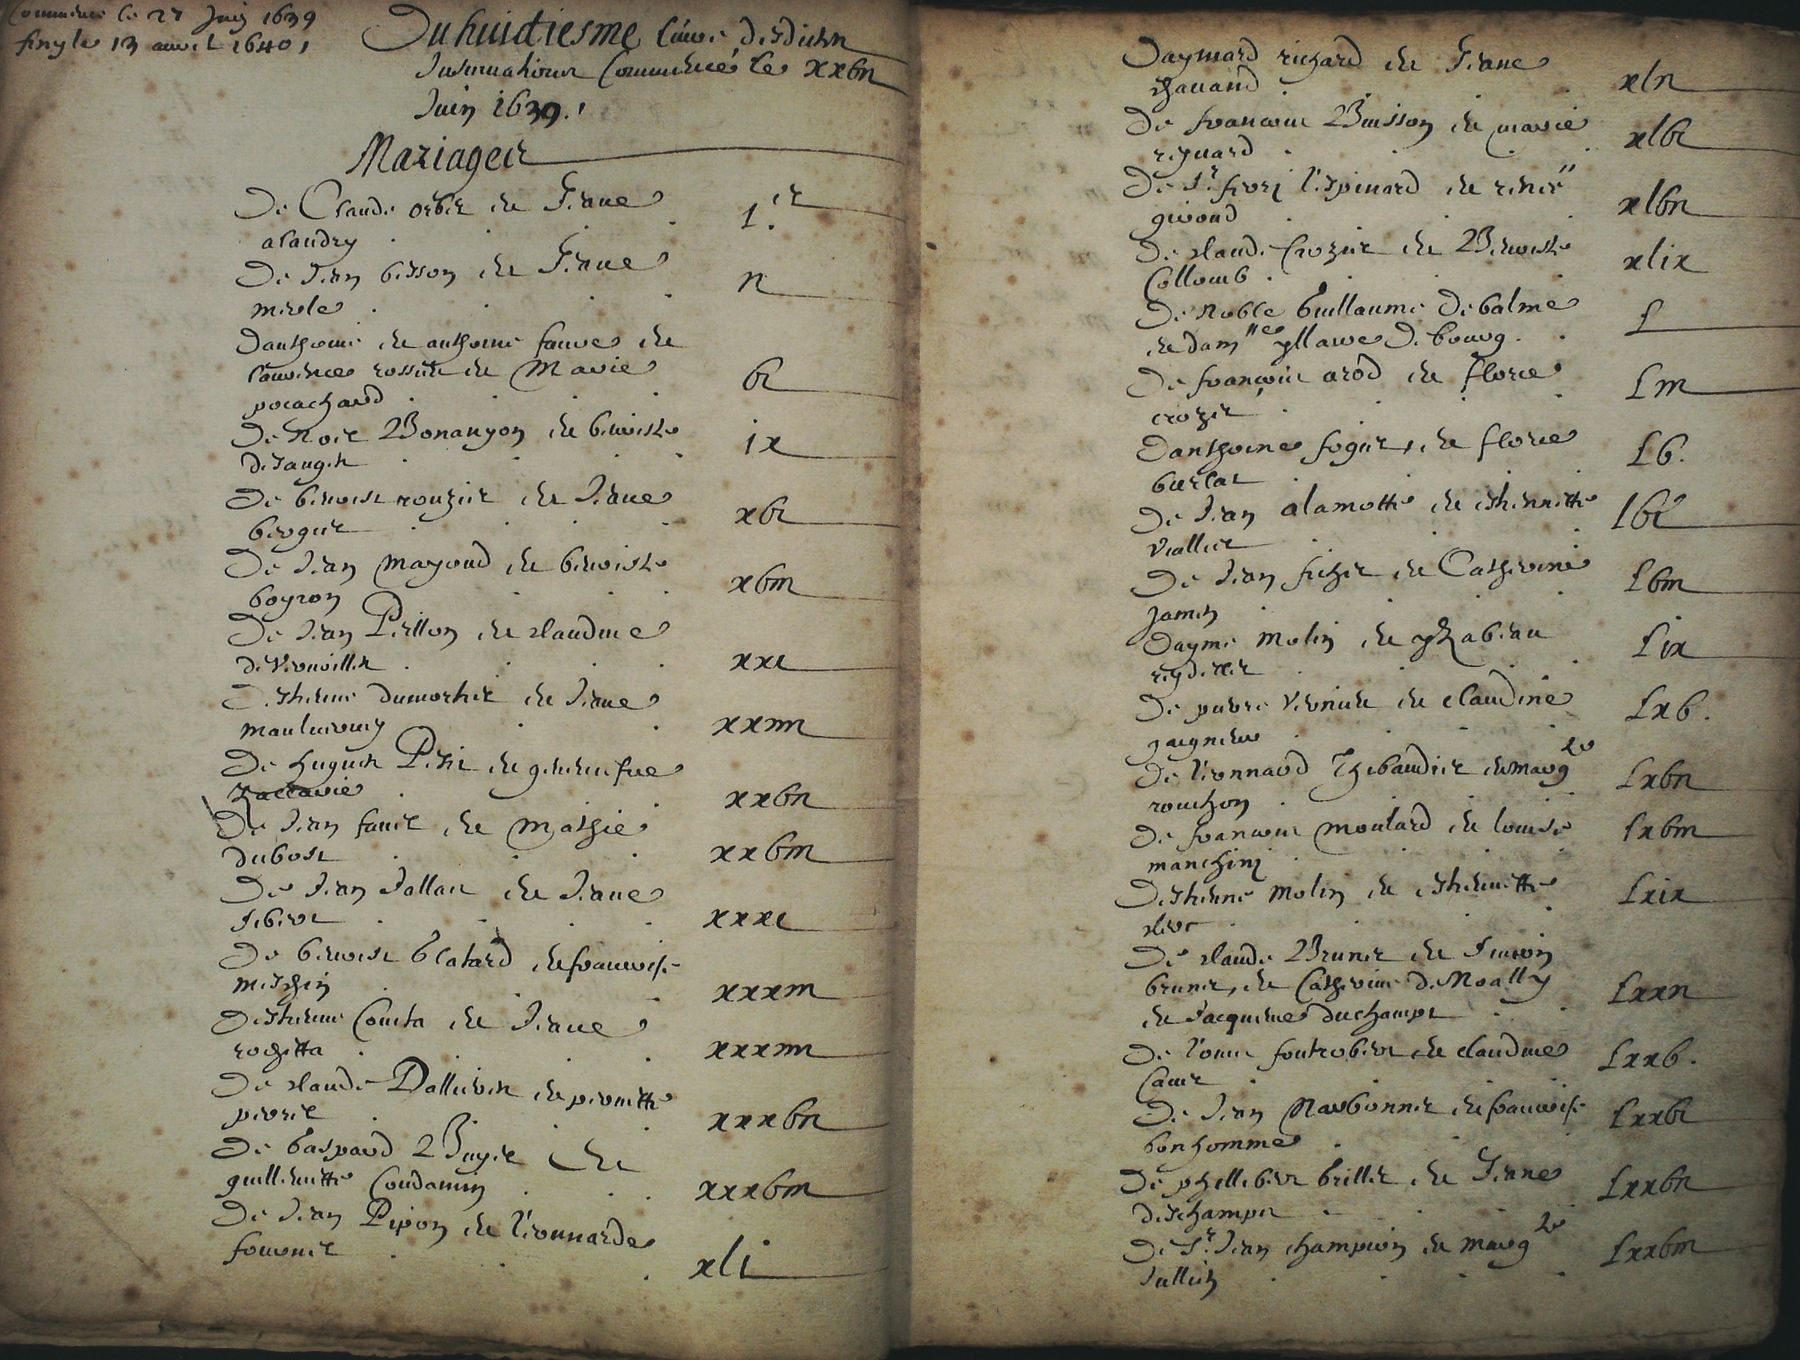 Commence le 27 Juin 1639
finy le 13 avril 1640
Du huictiesme livre desdictes
Insinuations Commencé le xxvii
Juin 1639.
Mariages
De Claude et de Jeane
alaudry
1.er
De Jean besson et de Jeane
merle
ii
Danthoine et anthoine favre et de
laurence rossete et de Marie
porachard
vi
De Noel Bonanyon et de benoiste
desaugen
ix
De benoist rouzier et de Jeane
bergier
xvi
De Jean mayoud et de benoiste
boyron
xviii
De Jean Pitllon et de claudine
xxi
Desthienne dumortier et de Jeane
xxiiii
De hugues Petit et de geneviefve
xxvii
De Jean favre et de Mathie
dubost
xxviii
De Jean Jallan et de Jeane
Jibert
xxxi
De benoist blatard et de francoise
meschin
xxxiii
Desthienne Comta et de Jeane
rochetta
xxxiiii
De claude Dallieven et de pernette
perret
xxxvii
De Gaspard Buyer et de
guillemette Condamin
xxxviii
De Jean Pipon et de leonnarde
fournier
xli
Daymard richard et de Jeane
chavand
xlii
De francois Buisson et de marie
reynard
xlvi
De Sr. fleury lespinard et de renée
giroud
xlvii
De claude Crozier et de Benoiste
Collomb
xlix
De Noble Guillaume de balme
et dam.lle yllaire de bourg
L
De francois arod et de florie
crozier
Liii
Danthoine fogier, et de florie
burlat
Lv.
De Jean alamotte et de esthiennette
viallier
lvi
De Jean fichet et de Catherine
Jamen
Lviii
Dayme Molin et de yzabeau
Lix
De pierre verniere et de claudine
gaignieu
Lxv.
De leonnard Thibaudier et de marg.te
rouchon
Lxvii
De francois moulard et de louise
manchini
Lxviii
Desthienne Molin et de esthiennette
clerc
Lxix
De claude Brunet et de Simon
brunet, et de Catherine de Noally
et de Jacqueme duchamps
Lxxii
De louis foutrobert et de claudine
Lxxv.
De Jean Narbonnet et de francoise
bonhomme
Lxxvi
De phillibert brillet et de Jeane
deschamps
Lxxvii
De Sr. Jean champion et de marg.te
Jullien
Lxxviii